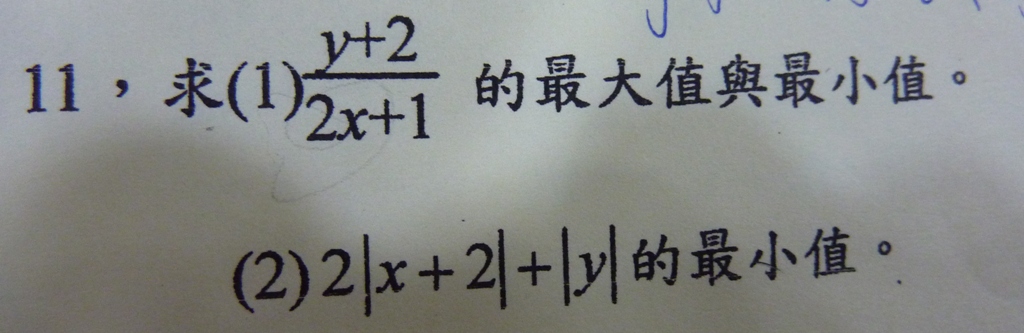 11，求(1) \frac{y+2}{2x+1} 的最大值與最小值。
(2) 2|x+2|+|y| 的最小值。